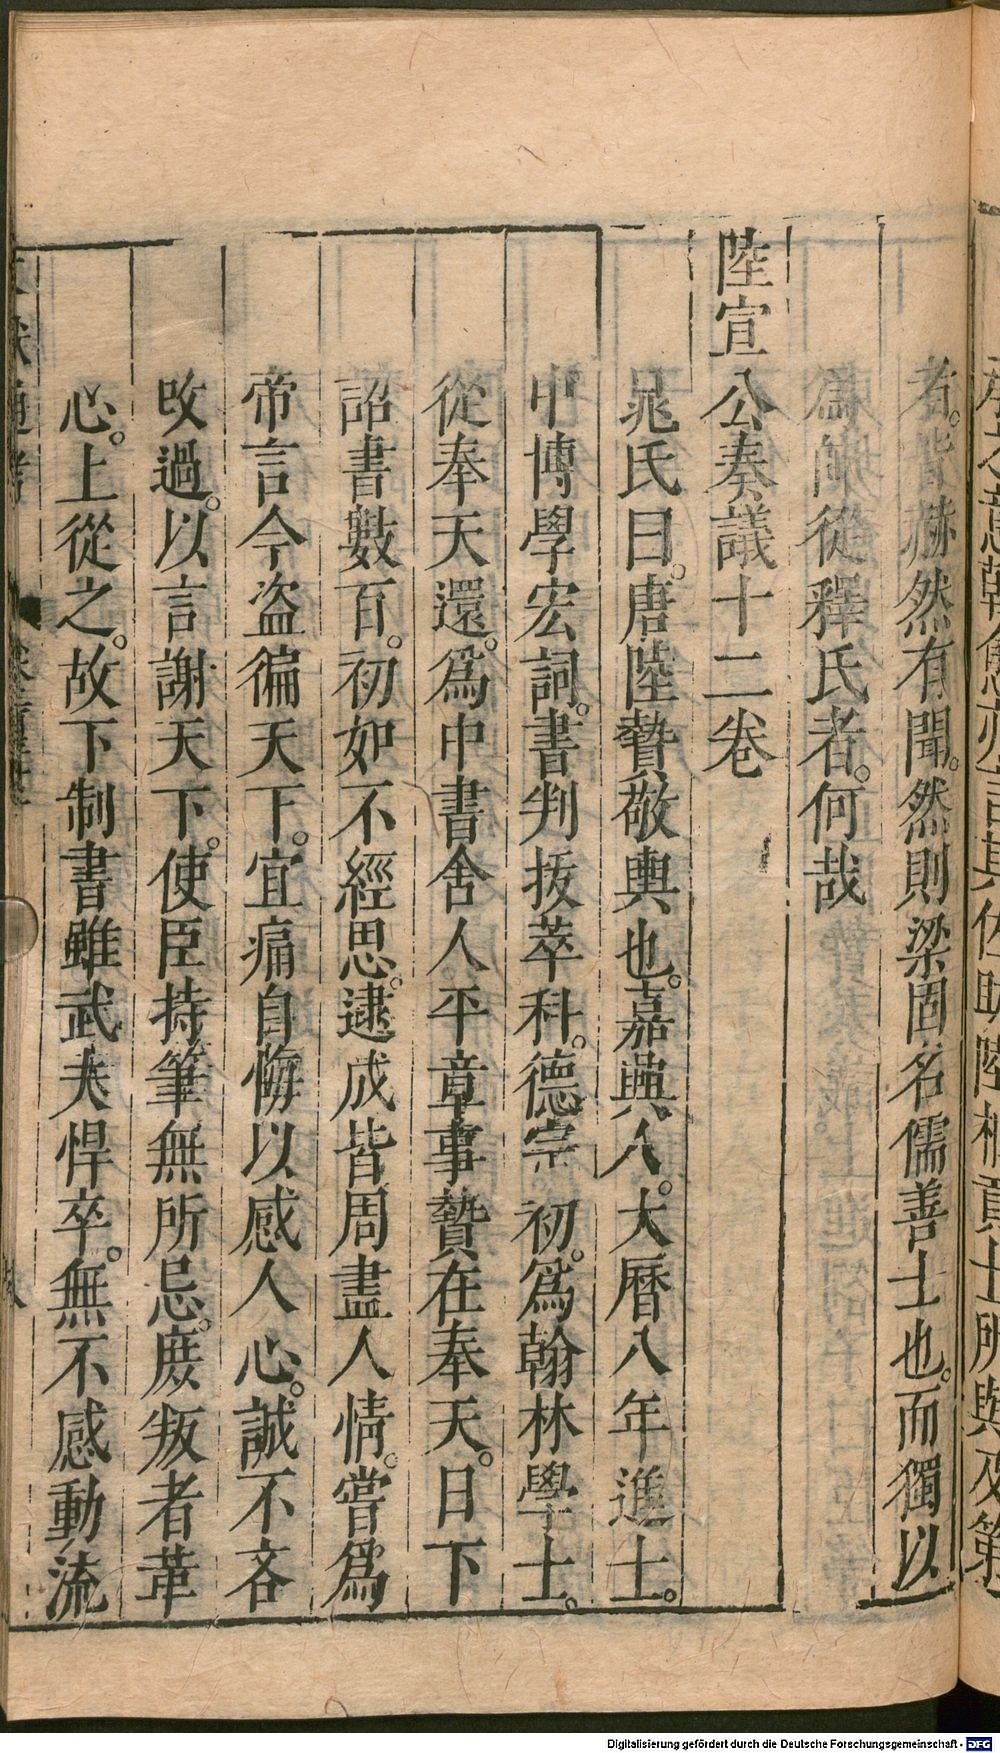 者。皆赫然有聞。然則梁固名儒善士也。而獨以
為師從釋氏者。何哉
陸宣公奏議十二卷
晁氏曰。唐陸贄敬輿也。嘉興人。大曆八年進士。
中博學宏詞。書判拔萃科。德宗初。爲翰林學士。
從奉天還。爲中書舍人。平章事贄在奉天。日下
詔書數百。初如不經思。逮成皆周盡人情。嘗爲
帝言今盜徧天下。宜痛自悔以感人心。誠不吝
攺過。以言謝天下。使臣持筆無所忌。庻叛者革
心。上從之。故下制書雖武夫悍卒。無不感動流
Digitalisierung gefördert durch die Deutsche Forschungsgemeinschaft - DFG